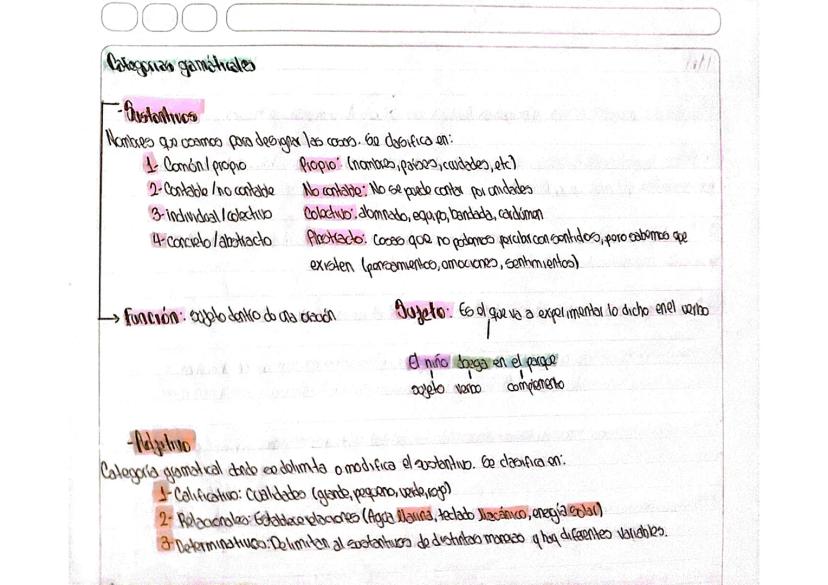 Categorias gramáticales
- Sustantivos
Nombres que usamos para designar las cosas. Se clasifica en:
1- Común/propio    Propio: (nombres, países, ciudades, etc)
2- Contable/no contable    No contable: No se puede contar por unidades
3- individual/colectivo    Colectivo: alumnado, equipo, bandada, cardúmen
4- concreto/abstracto    Abstracto: Cosas que no podemos percibir con sentidos, pero sabemos que
existen (pensamientos, emociones, sentimientos)
→ Función: sujeto dentro de una oración    Sujeto: Es el que va a experimentar lo dicho en el verbo
El niño juega en el parque
sujeto verbo complemento
- Adjetivo
Categoría gramatical donde se delimita o modifica el sustantivo. Se clasifica en:
1- Calificativo: Cualidades (grande, pequeño, verde, rojo)
2- Relacionales: Establece relaciones (Agua Marina, teclado Mecánico, energía solar)
3- Determinativos: Delimitan al sustantivos de distintas maneras y hay diferentes variables.